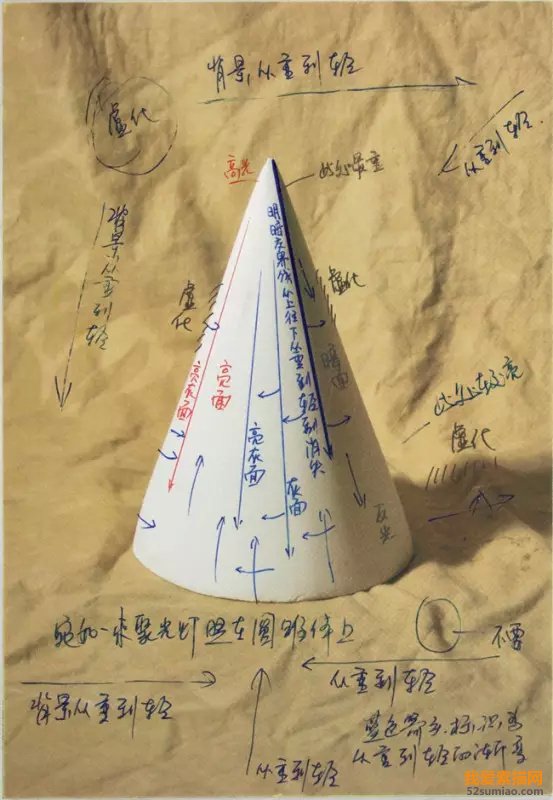 背景从重到轻
虚化
从重到轻
高光
此处最重
背景从重到轻
虚化
虚化
明暗交界线从上往下从重到轻到消失
亮灰面
亮面
暗面
此处较亮
虚化
亮灰面
灰面
反光
宛如一束聚光灯照在圆锥体上
不要
从重到轻
背景从重到轻
从重到轻
蓝色箭头标识为
从重到轻的渐变
我爱素描网
52sumiao.com